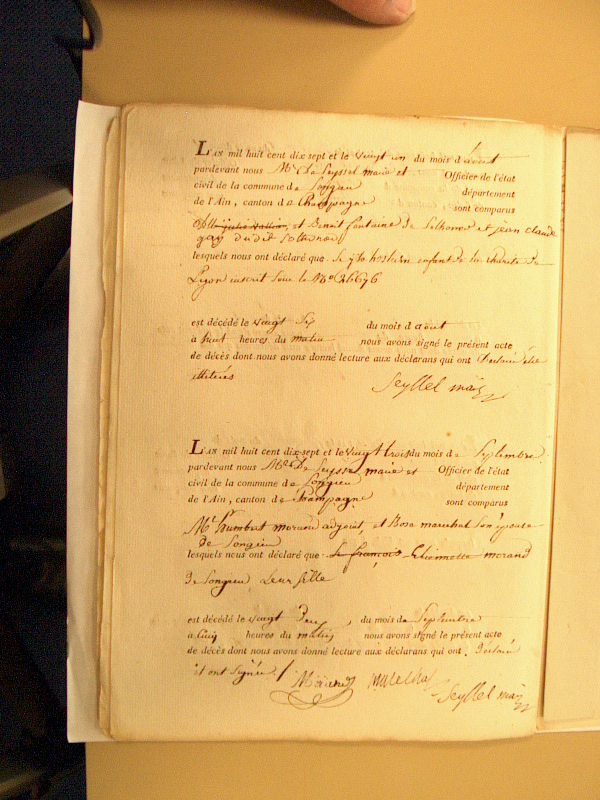 L'AN mil huit cent dix sept et le vingt un du mois d'août
pardevant nous Mr De Seyssel maire et Officier de l'état
civil de la commune de Songieu département
de l'Ain, canton de Champagne sont comparus
et Benoit fontaine de Sothonod et jean claude
gay dudit Sothonod
lesquels nous ont déclaré que enfant de la charité de
Lyon inscrit sous le No
est décédé le vingt Six du mois d août
à huit heures du matin nous avons signé le présent acte
de décès dont nous avons donné lecture aux déclarans qui ont Déclaré être
illitérés
Seyssel maire
L'AN mil huit cent dix sept et le vingt trois du mois de Septembre
pardevant nous Mr De Seyssel maire et Officier de l'état
civil de la commune de Songieu département
de l'Ain, canton de Champagne sont comparus
Mr humbert morand adjoint, et Rose marechal Son épouse
de Songieu
lesquels nous ont déclaré que Le françois Etiennette morand
de Songieu Leur fille
est décédé le vingt Deux, du mois de Septembre
à Cinq heures du matin nous avons signé le présent acte
de décès dont nous avons donné lecture aux déclarans qui ont Déclaré
et ont Signé
Morand marechal Seyssel maire